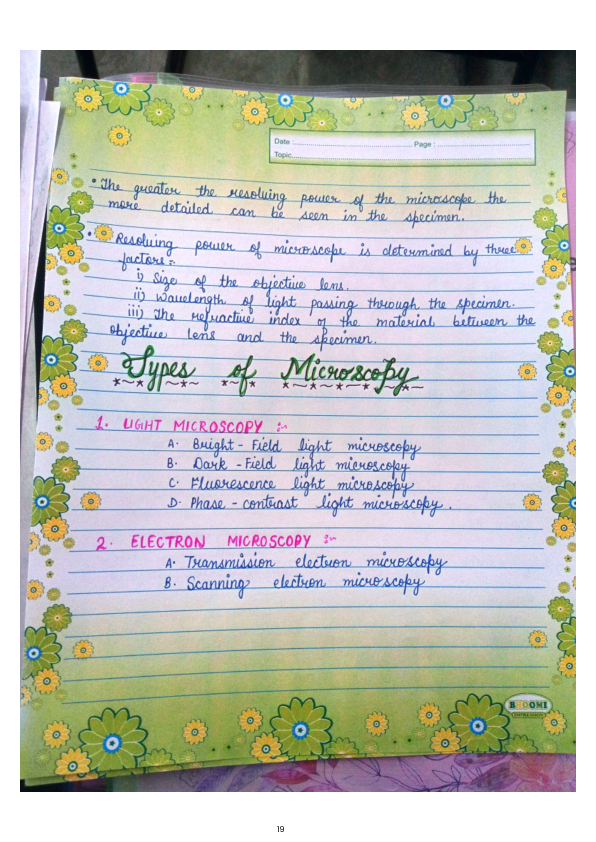 Date : Page :
Topic
• The greater the resolving power of the microscope the
more detailed can be seen in the specimen.
• Resolving power of microscope is determined by three
factors :-
i) Size of the objective lens.
ii) Wavelength of light passing through the specimen.
iii) The refractive index of the material between the
objective lens and the specimen.
Types of Microscopy
1. LIGHT MICROSCOPY :-
A. Bright - Field light microscopy
B. Dark - Field light microscopy
C. Fluorescence light microscopy
D. Phase - contrast light microscopy.
2. ELECTRON MICROSCOPY :-
A. Transmission electron microscopy
B. Scanning electron microscopy
BHOOMI
19